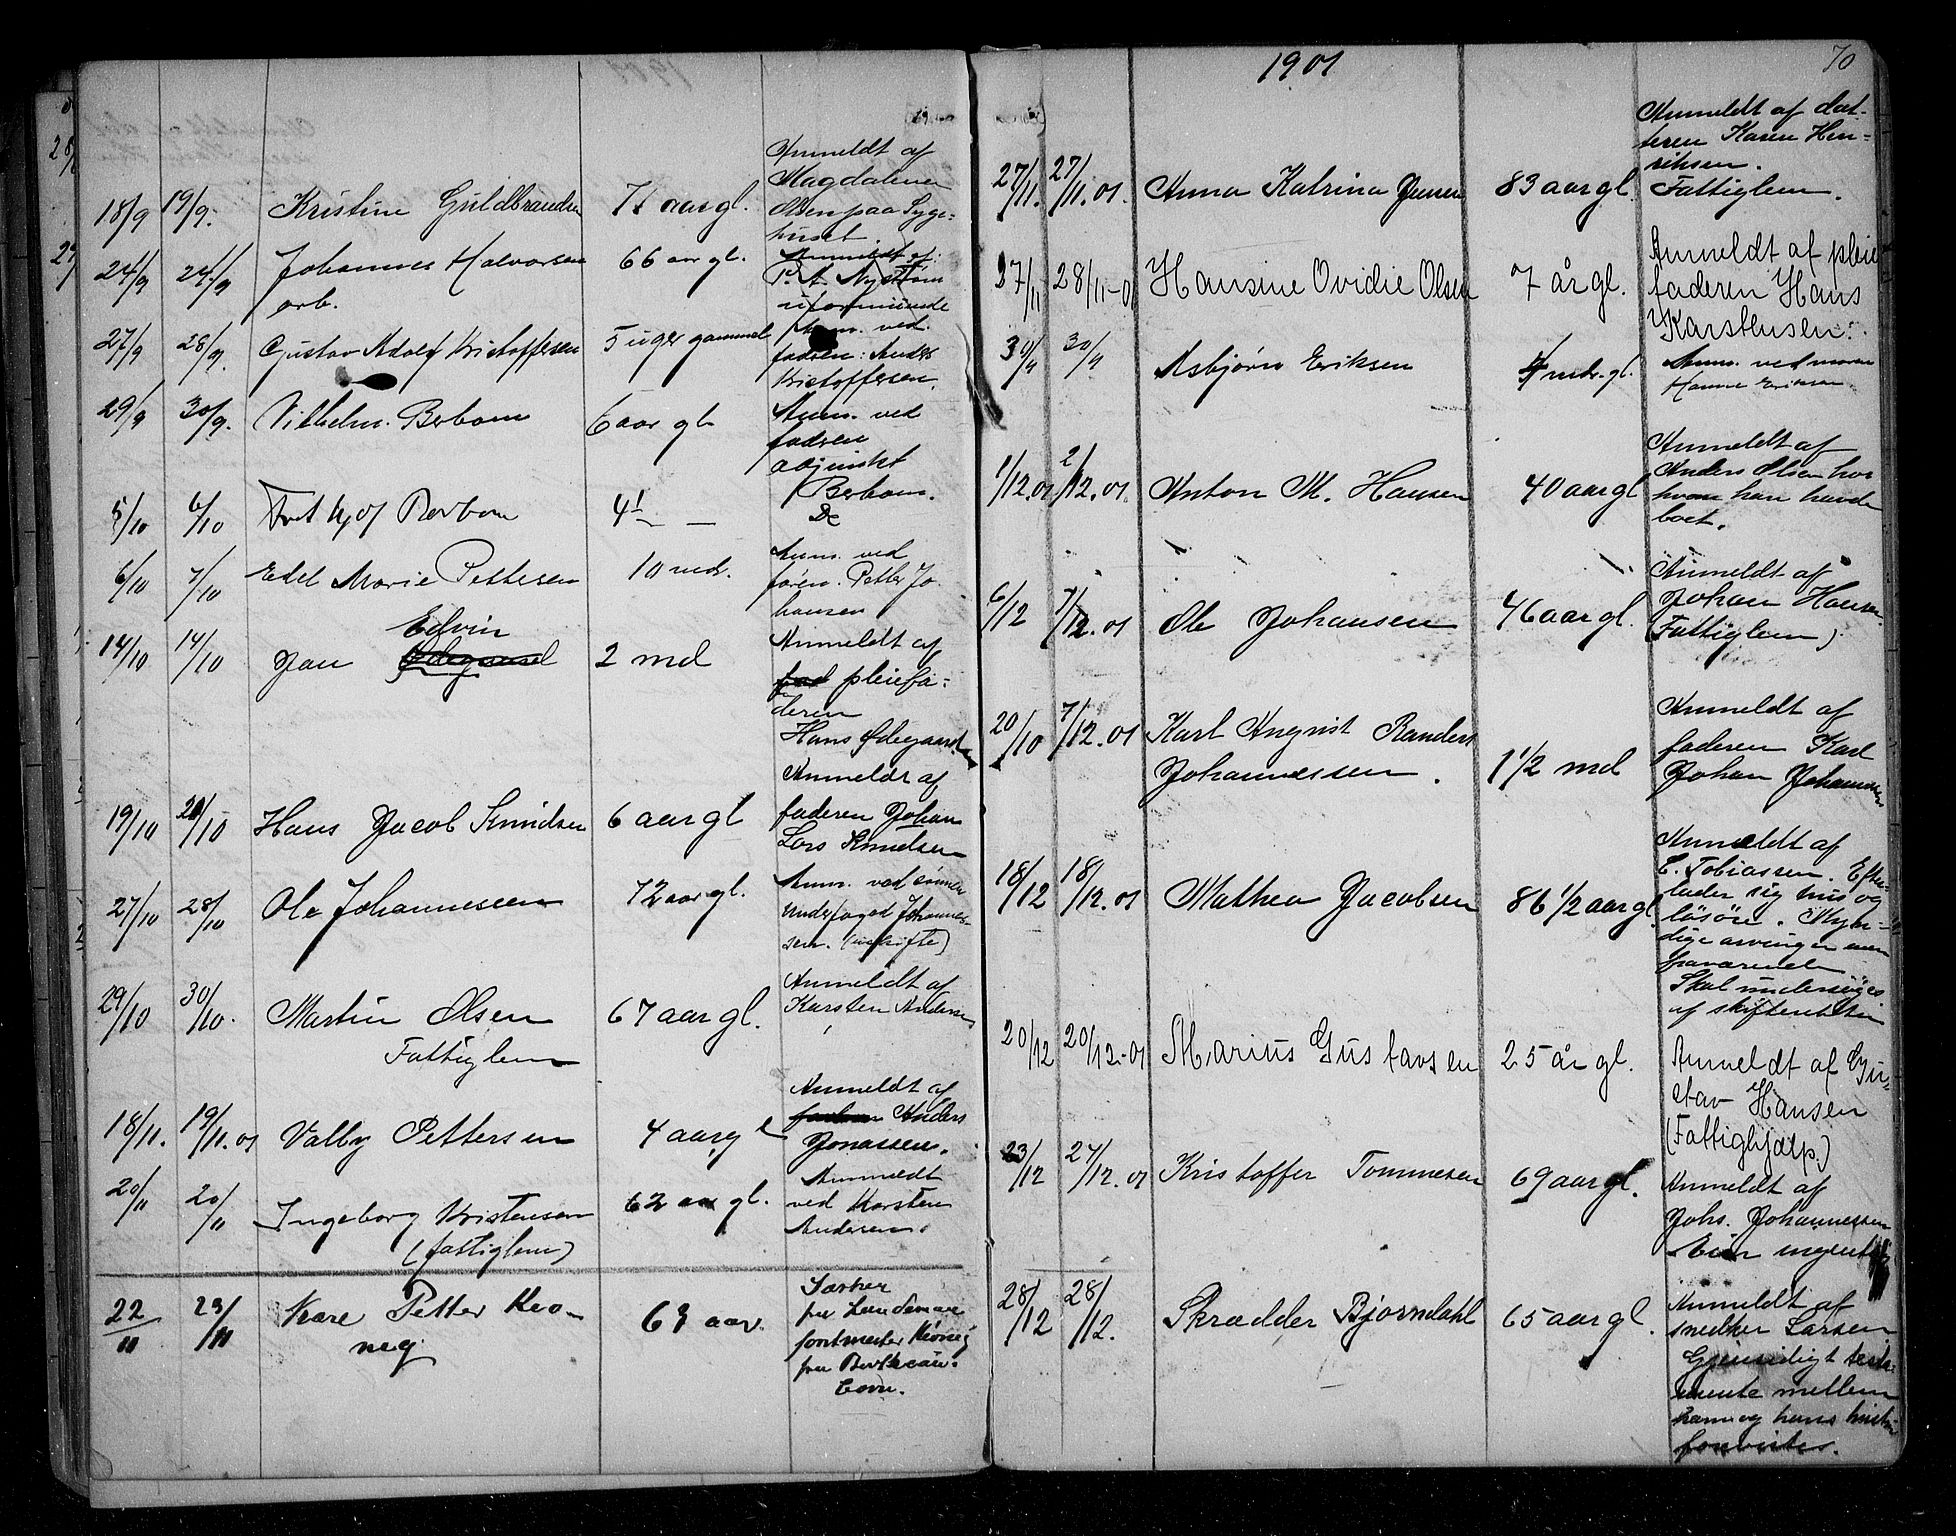 18/9 19/9. Kristine Guldbrandsen 71 aar gl. Anmeldt af
Magdalena
Olsen paa Syge-
huset
24/9 24/9 Johannes Halvorsen 66 aar gl. Anmeldt af:
arb. P. A. Nystrøm
uformuende
27/9 28/9. Gustav Adolf Kristoffersen 5 uger gammel Anm. ved.
fadren: Anders
Kristoffersen.
29/9 30/9. Vilhelm. Berbom 6 aar gl. Anm. ved
fadren
adjunkt
Berbom.
5/10 6/10 Berbom 4 Do
6/10 7/10 Edel Marie Pettersen 10 mdr. Anm. ved
Petter Jo
hansen
Edvin
14/10 14/10 Jan Ødegaard 2 md Anmeldt af
fad pleiefa-
deren
Hans Ødegaard
19/10 /10 Hans Jacob Knudsen 6 aar gl Anmeldt af
faderen Johan
Lars Knudsen
27/10 28/10 Ole Johannessen 72 aar gl. Anm. ved sønnen
underfoged Johannes-
sen.
29/10 30/10. Martin Olsen 67 aar gl. Anmeldt af
Fattiglem Karsten Andersen
18/11. 19/11.01 Valby Pettersen 4 aar gl Anmeldt af
faderen Anders
Jonassen.
20/11 20/11 Ingeborg Kristensen 62 aar gl. Anmeldt
(fattiglem) ved Karsten
Andersen.
22/11 23/11 Kare Petter Kro- 63 aar.
neg

1901 70
27/11. 27/11.01. Anna Katrina Jensen 83 aar gl. Anmeldt af dat-
teren Karen Hen-
riksen.
Fattiglem.
27/11 28/11-01 Hansine Ovidie Olsen 7 år gl. Anmeldt af pleie
faderen Hans
Karsthensen.
30/9 Asbjørn Eriksen mdr. gl. Anm. ved moren
Hanna Eriksen
1/12.01 2/12.01. Anton M. Hansen 40 aar gl Anmeldt af
Anders Olsen hos
hvem han havde
boet.
6/12 7/12.01 Ole Johansen 46 aar gl. Anmeldt af
Johan Hansen
(Fattiglem)
20/10 7/12.01 Karl August Randers Anmeldt af
Johannessen. 1 1/2 md faderen Karl
Johan Johannessen
18/12 18/12.01 Mathea Jacobsen 86 1/2 aar gl. Anmeldt af
E. Tobiassen. Efter-
lader sig hus og
løsøre. Myn-
dige arvinger men
fraværende
Skal undersøges
af skifteretten
20/12 20/12-01 Marius Gustavsen 25 år gl. Anmeldt af Gu-
stav Hansen
(Fattighjælp.)
23/12 24/12.01 Kristoffer Tommesen 69 aar gl. Anmeldt af
Johs. Johannessen
Eier ingenting
28/12 28/12. Skrædder Bjørndahl 65 aar gl. Anmeldt af
snedker Larsen
Gjensidigt testa-
mente mellem
ham og hans hustru